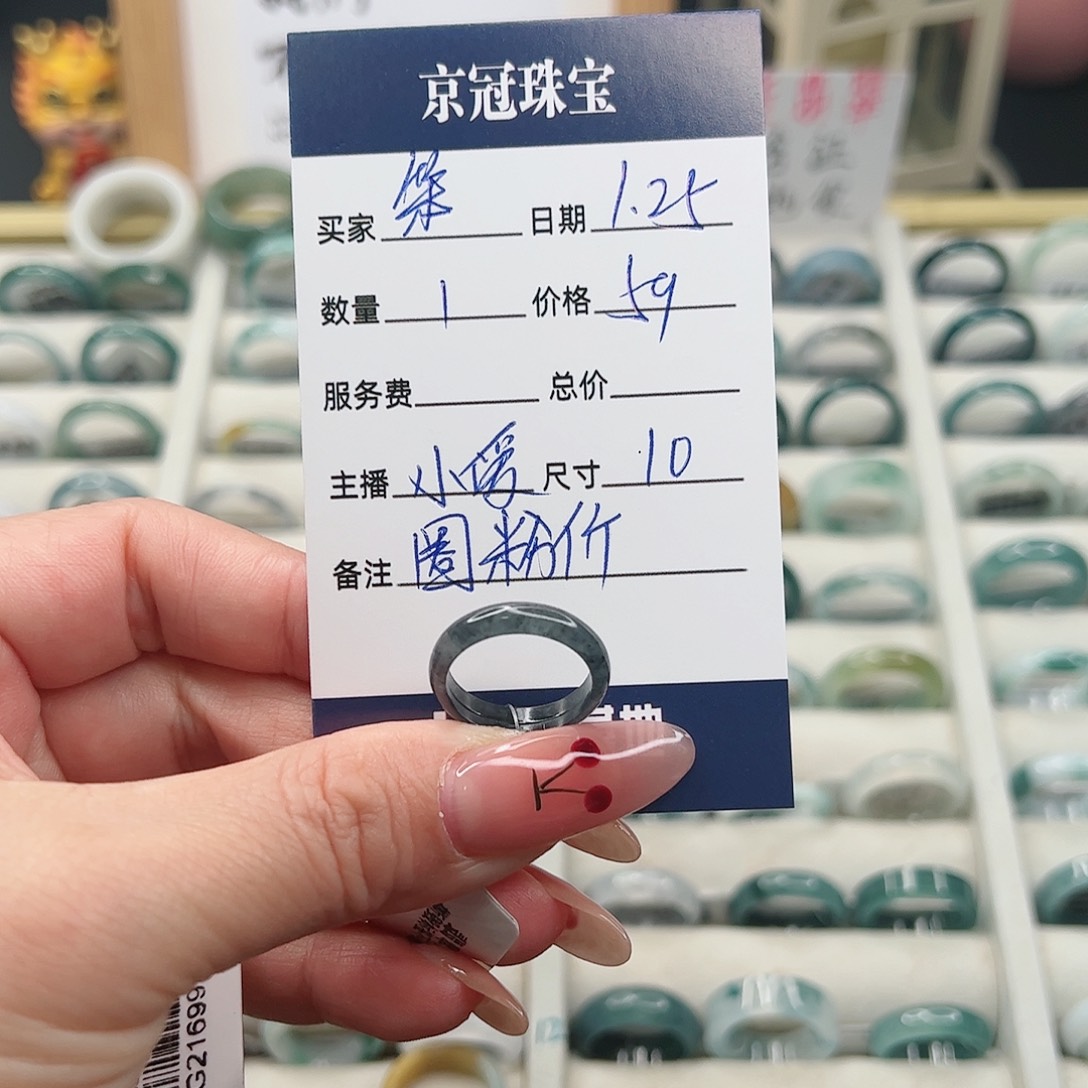 京冠珠宝
买家 荣 日期 1.25
数量 1 价格 59
服务费 总价
主播 小媛 尺寸 10
备注 圈粉价
基地
G21699